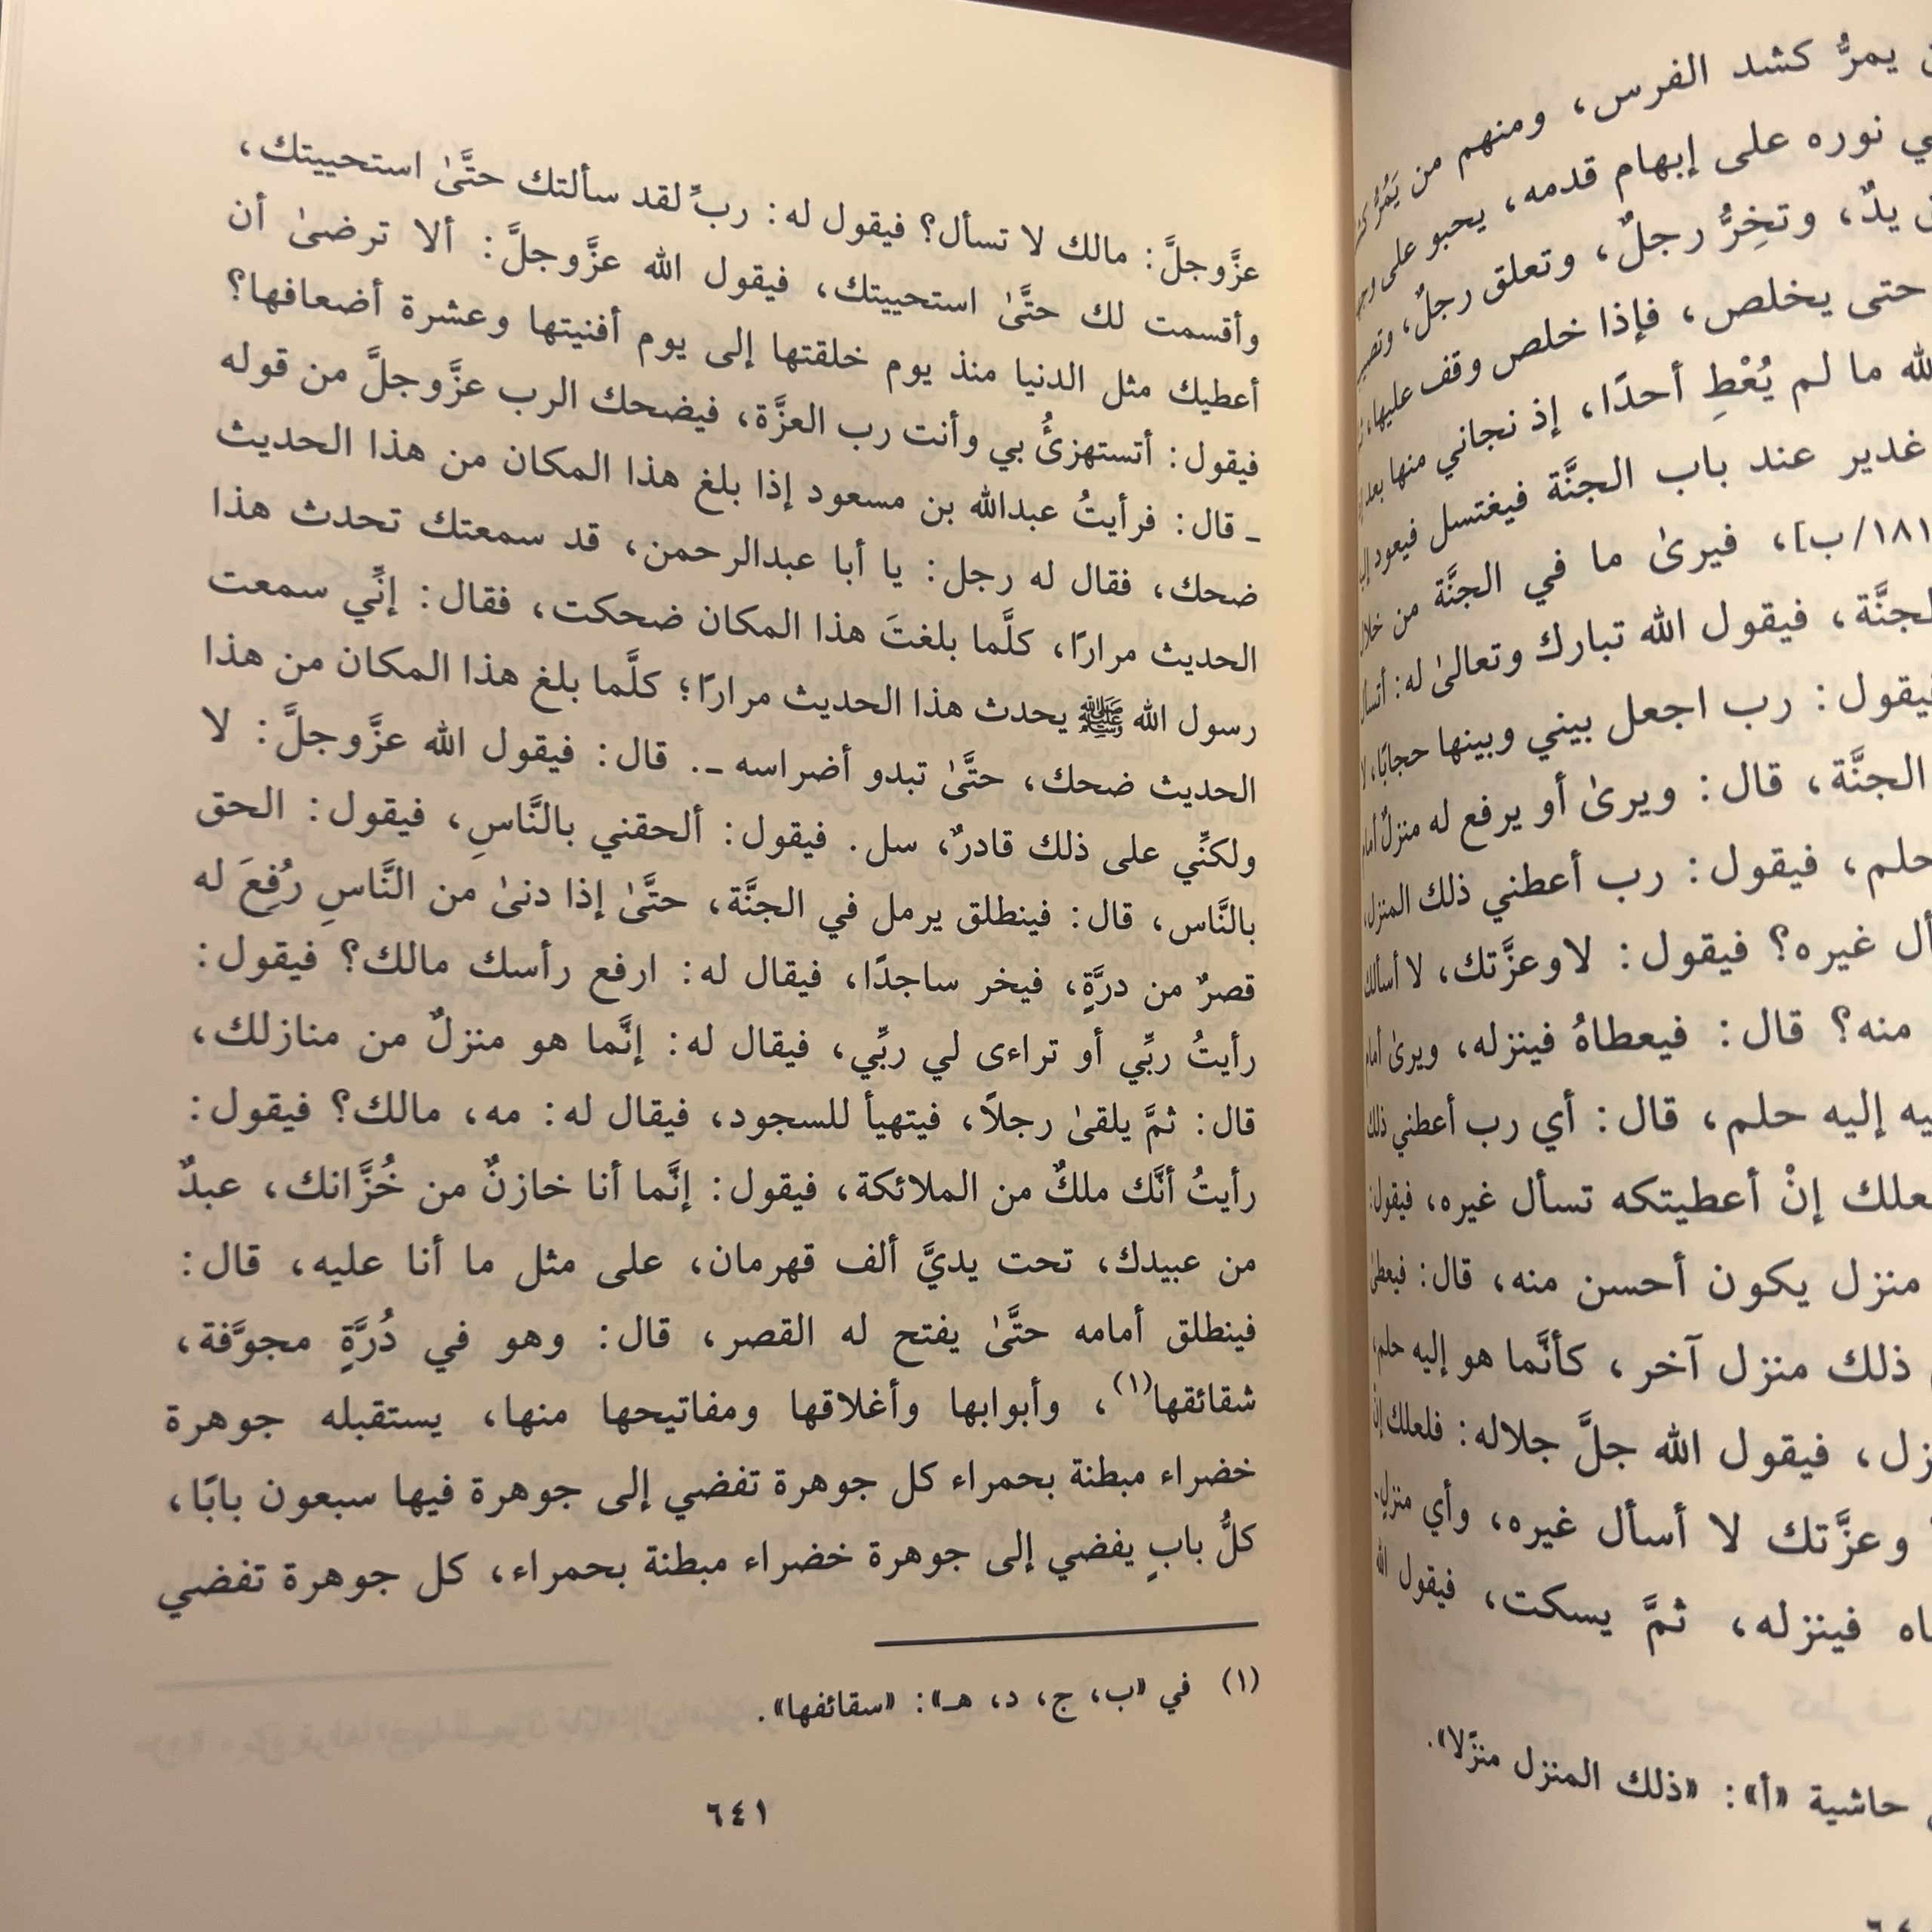 ن يمرُّ كشد الفرس، ومنهم من يَمُرُّ
ي نوره على إبهام قدمه، يحبو على
يدٌ، وتخِرُّ رجلٌ، وتعلق رجلٌ،
حتى يخلص، فإذا خلص وقف عليها،
لله ما لم يُعْطِ أحدًا، إذ نجاني منها بعد
غدير عند باب الجنَّة فيغتسل فيعود
١٨١/ ب]، فيرىٰ ما في الجنَّة من خلال
لجنَّة، فيقول الله تبارك وتعالىٰ له:
فيقول: رب اجعل بيني وبينها حجابًا، لا
الجنَّة، قال: ويرىٰ أو يرفع له منزلٌ
حلم، فيقول: رب أعطني ذلك المنزل،
أل غيره؟ فيقول: لاوعزَّتك، لا أسألك
منه؟ قال: فيعطاهُ فينزله، ويرىٰ
يه إليه حلم، قال: أي رب أعطني ذلك
علك إنْ أعطيتكه تسأل غيره، فيقول:
منزل يكون أحسن منه، قال:
ذلك منزل آخر، كأنَّما هو إليه حلم،
زل، فيقول الله جلَّ جلاله: فلعلك إن
وعزَّتك لا أسأل غيره، وأي منزل
اه فينزله، ثمَّ يسكت، فيقول الله
حاشية «أ»: «ذلك المنزل منزلًا».
عزَّوجلَّ: مالك لا تسأل؟ فيقول له: ربِّ لقد سألتك حتَّىٰ استحييتك،
وأقسمت لك حتَّىٰ استحييتك، فيقول الله عزَّوجلَّ: ألا ترضىٰ أن
أعطيك مثل الدنيا منذ يوم خلقتها إلى يوم أفنيتها وعشرة أضعافها؟
فيقول: أتستهزئُ بي وأنت رب العزَّة، فيضحك الرب عزَّوجلَّ من قوله
ـ قال: فرأيتُ عبدالله بن مسعود إذا بلغ هذا المكان من هذا الحديث
ضحك، فقال له رجل: يا أبا عبدالرحمن، قد سمعتك تحدث هذا
الحديث مرارًا، كلَّما بلغتَ هذا المكان ضحكت، فقال: إنِّي سمعت
رسول الله ﷺ يحدث هذا الحديث مرارًا؛ كلَّما بلغ هذا المكان من هذا
الحديث ضحك، حتَّىٰ تبدو أضراسه ـ. قال: فيقول الله عزَّوجلَّ: لا
ولكنِّي على ذلك قادرٌ، سل. فيقول: ألحقني بالنَّاسِ، فيقول: الحق
بالنَّاس، قال: فينطلق يرمل في الجنَّة، حتَّىٰ إذا دنىٰ من النَّاسِ رُفِعَ له
قصرٌ من درَّةٍ، فيخر ساجدًا، فيقال له: ارفع رأسك مالك؟ فيقول:
رأيتُ ربِّي أو تراءى لي ربِّي، فيقال له: إنَّما هو منزلٌ من منازلك،
قال: ثمَّ يلقىٰ رجلاً، فيتهيأ للسجود، فيقال له: مه، مالك؟ فيقول:
رأيتُ أنَّك ملكٌ من الملائكة، فيقول: إنَّما أنا خازنٌ من خُزَّانك، عبدٌ
من عبيدك، تحت يديَّ ألف قهرمان، على مثل ما أنا عليه، قال:
فينطلق أمامه حتَّىٰ يفتح له القصر، قال: وهو في دُرَّةٍ مجوَّفة،
شقائقها(١)، وأبوابها وأغلاقها ومفاتيحها منها، يستقبله جوهرة
خضراء مبطنة بحمراء كل جوهرة تفضي إلى جوهرة فيها سبعون بابًا،
كلُّ بابٍ يفضي إلى جوهرة خضراء مبطنة بحمراء، كل جوهرة تفضي
(١) في «ب، ج، د، هـ»: «سقائفها».
٦٤١